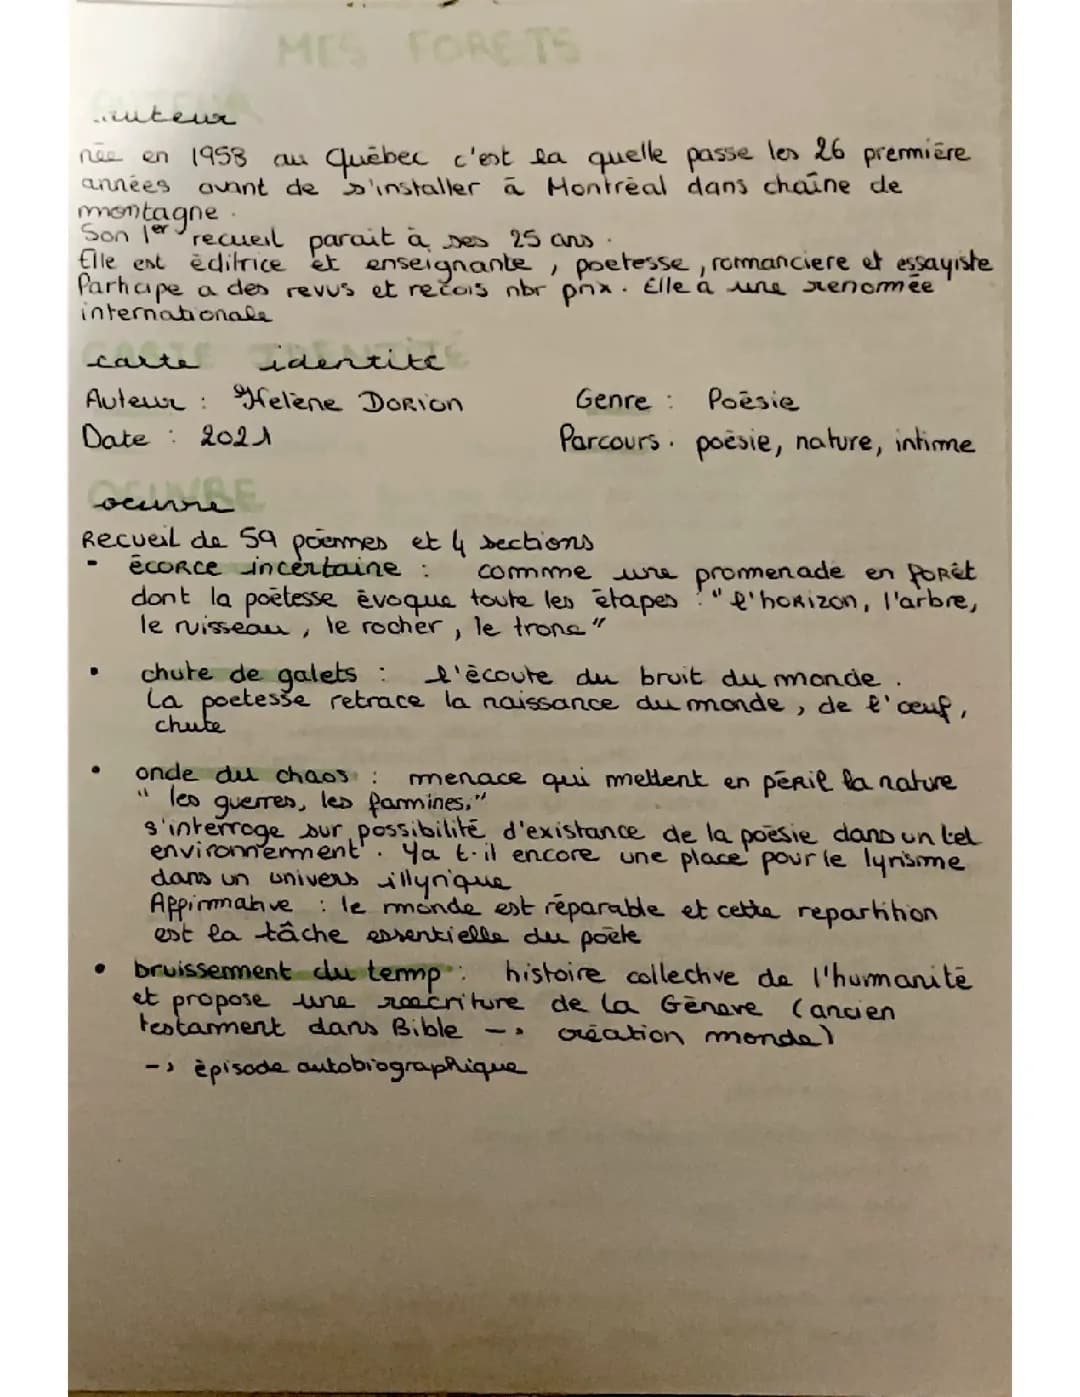 MES FORETS
auteur
née en 1958 au Québec c'est la quelle passe les 26 première
années avant de s'installer à Montréal dans chaîne de
montagne.
Son 1er recueil parait à ses 25 ans.
Elle est éditrice et enseignante, poetesse, romanciere et essayiste
Participe a des revus et recois nbr prix. Elle a une renomée
internationale
carte identité
Auteur : Helène DORION
Genre : Poésie
Date : 2021
Parcours. poésie, nature, intime
oeuvre
Recueil de 59 poèmes et 4 sections
- écorce incertaine : comme une promenade en forêt
dont la poètesse évoque toute les étapes : "l'horizon, l'arbre,
le ruisseau, le rocher, le tronc"
• chute de galets : l'écoute du bruit du monde.
La poetesse retrace la naissance du monde, de l'œuf,
chute
• onde du chaos : menace qui mettent en péril la nature
" les guerres, les famines,"
s'interroge sur possibilité d'existance de la poésie dans un tel
environnement. Ya t-il encore une place pour le lyrisme
dans un univers illyrique
Affirmative : le monde est réparable et cette repartition
est la tâche essentielle du poète
• bruissement du temp : histoire collective de l'humanité
et propose une réecriture de la Génève (ancien
testament dans Bible -> création monde)
-> épisode autobiographique